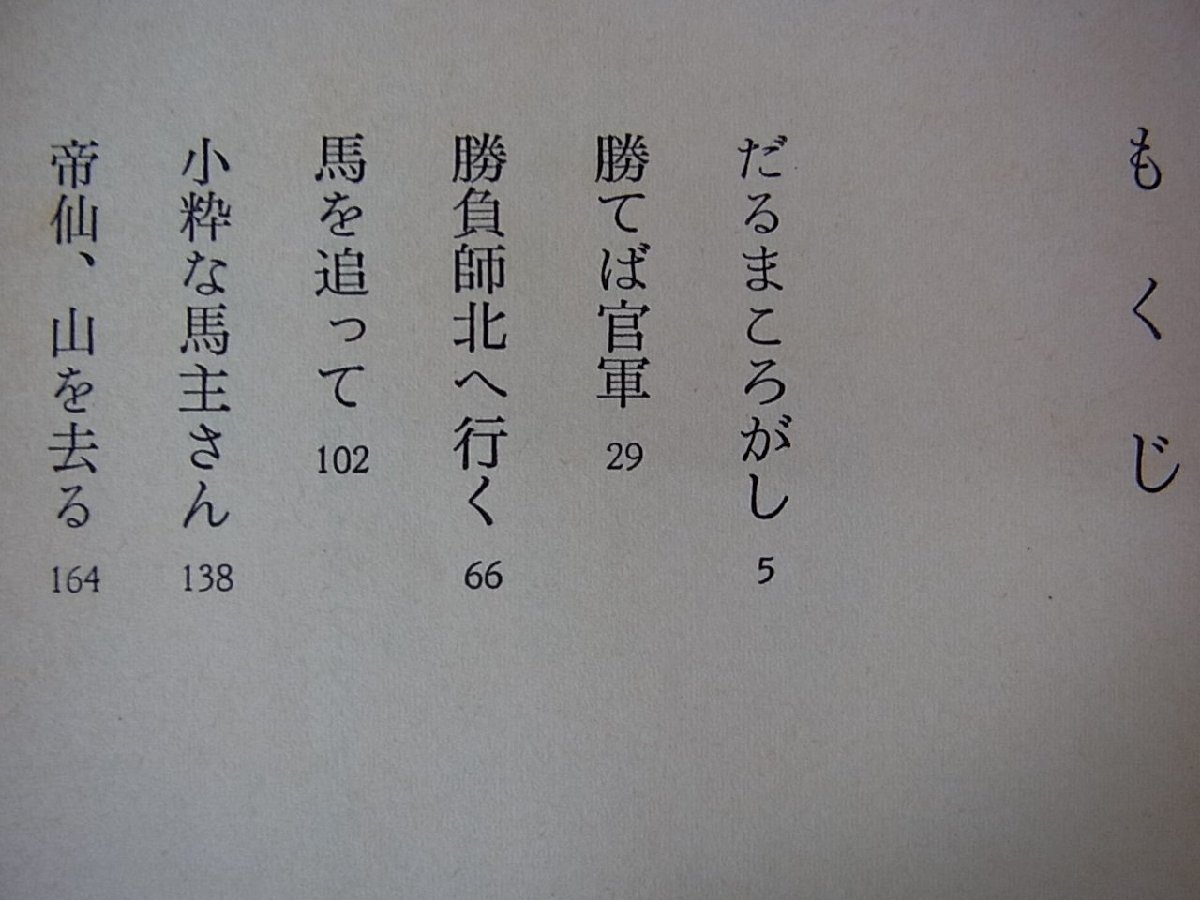 もくじ
だるまころがし 5
勝てば官軍 29
勝負師北へ行く 66
馬を追って 102
小粋な馬主さん 138
帝仙、山を去る 164